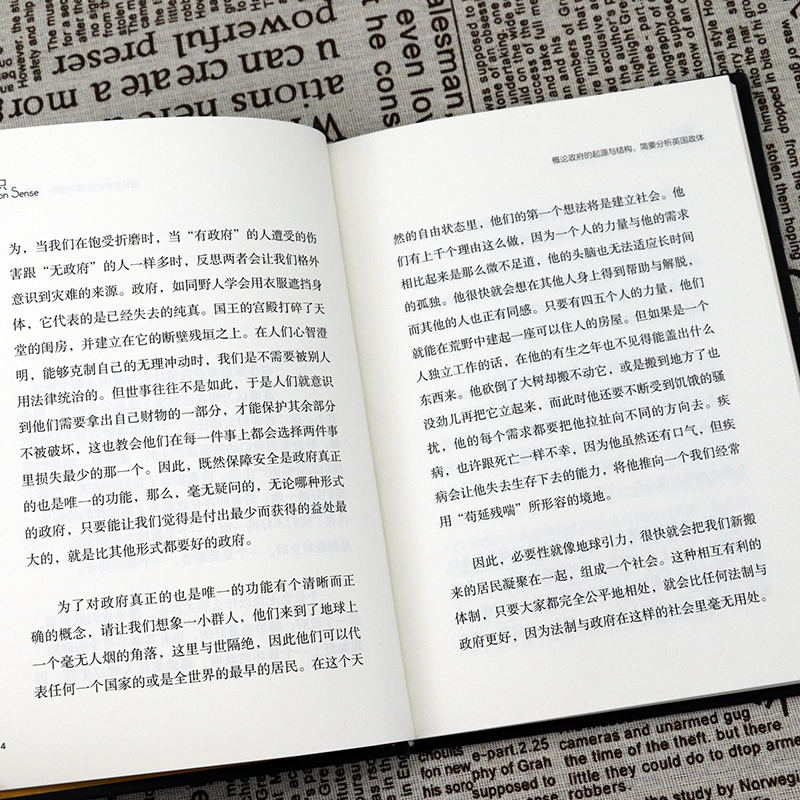 识
on Sense
为，当我们在饱受折磨时，当“有政府”的人遭受的伤
害跟“无政府”的人一样多时，反思两者会让我们格外
意识到灾难的来源。政府，如同野人学会用衣服遮挡身
体，它代表的是已经失去的纯真。国王的宫殿打碎了天
堂的闺房，并建立在它的断壁残垣之上。在人们心智澄
明，能够克制自己的无理冲动时，我们是不需要被别人
用法律统治的。但世事往往不是如此，于是人们就意识
到他们需要拿出自己财物的一部分，才能保护其余部分
不被破坏，这也教会他们在每一件事上都会选择两件事
里损失最少的那一个。因此，既然保障安全是政府真正
的也是唯一的功能，那么，毫无疑问的，无论哪种形式
的政府，只要能让我们觉得是付出最少而获得的益处最
大的，就是比其他形式都要好的政府。
为了对政府真正的也是唯一的功能有个清晰而正
确的概念，请让我们想象一小群人，他们来到了地球上
一个毫无人烟的角落，这里与世隔绝，因此他们可以代
表任何一个国家的或是全世界的最早的居民。在这个天
4
概论政府的起源与结构，简要分析英国政体
然的自由状态里，他们的第一个想法将是建立社会。他
们有上千个理由这么做，因为一个人的力量与他的需求
相比起来是那么微不足道，他的头脑也无法适应长时间
的孤独。他很快就会想在其他人身上得到帮助与解脱，
而其他的人也正有同感。只要有四五个人的力量，他们
就能在荒野中建起一座可以住人的房屋。但如果是一个
人独立工作的话，在他的有生之年也不见得能盖出什么
东西来。他砍倒了大树却搬不动它，或是搬到地方了也
没劲儿再把它立起来，而此时他还要不断受到饥饿的骚
扰，他的每个需求都要把他拉扯向不同的方向去。疾
病，也许跟死亡一样不幸，因为他虽然还有口气，但疾
病会让他失去生存下去的能力，将他推向一个我们经常
用“苟延残喘”所形容的境地。
因此，必要性就像地球引力，很快就会把我们新搬
来的居民凝聚在一起，组成一个社会。这种相互有利的
体制，只要大家都完全公平地相处，就会比任何法制与
政府更好，因为法制与政府在这样的社会里毫无用处。
powerful preser
u can create a
ations here
alesman
even lov
t he cons
e-part.2.25
phy of Grah
supposed to
cameras and unarmed gug
the time of the theft. but there
little they could do to dtop arme
robbers.
the study by Norwegi